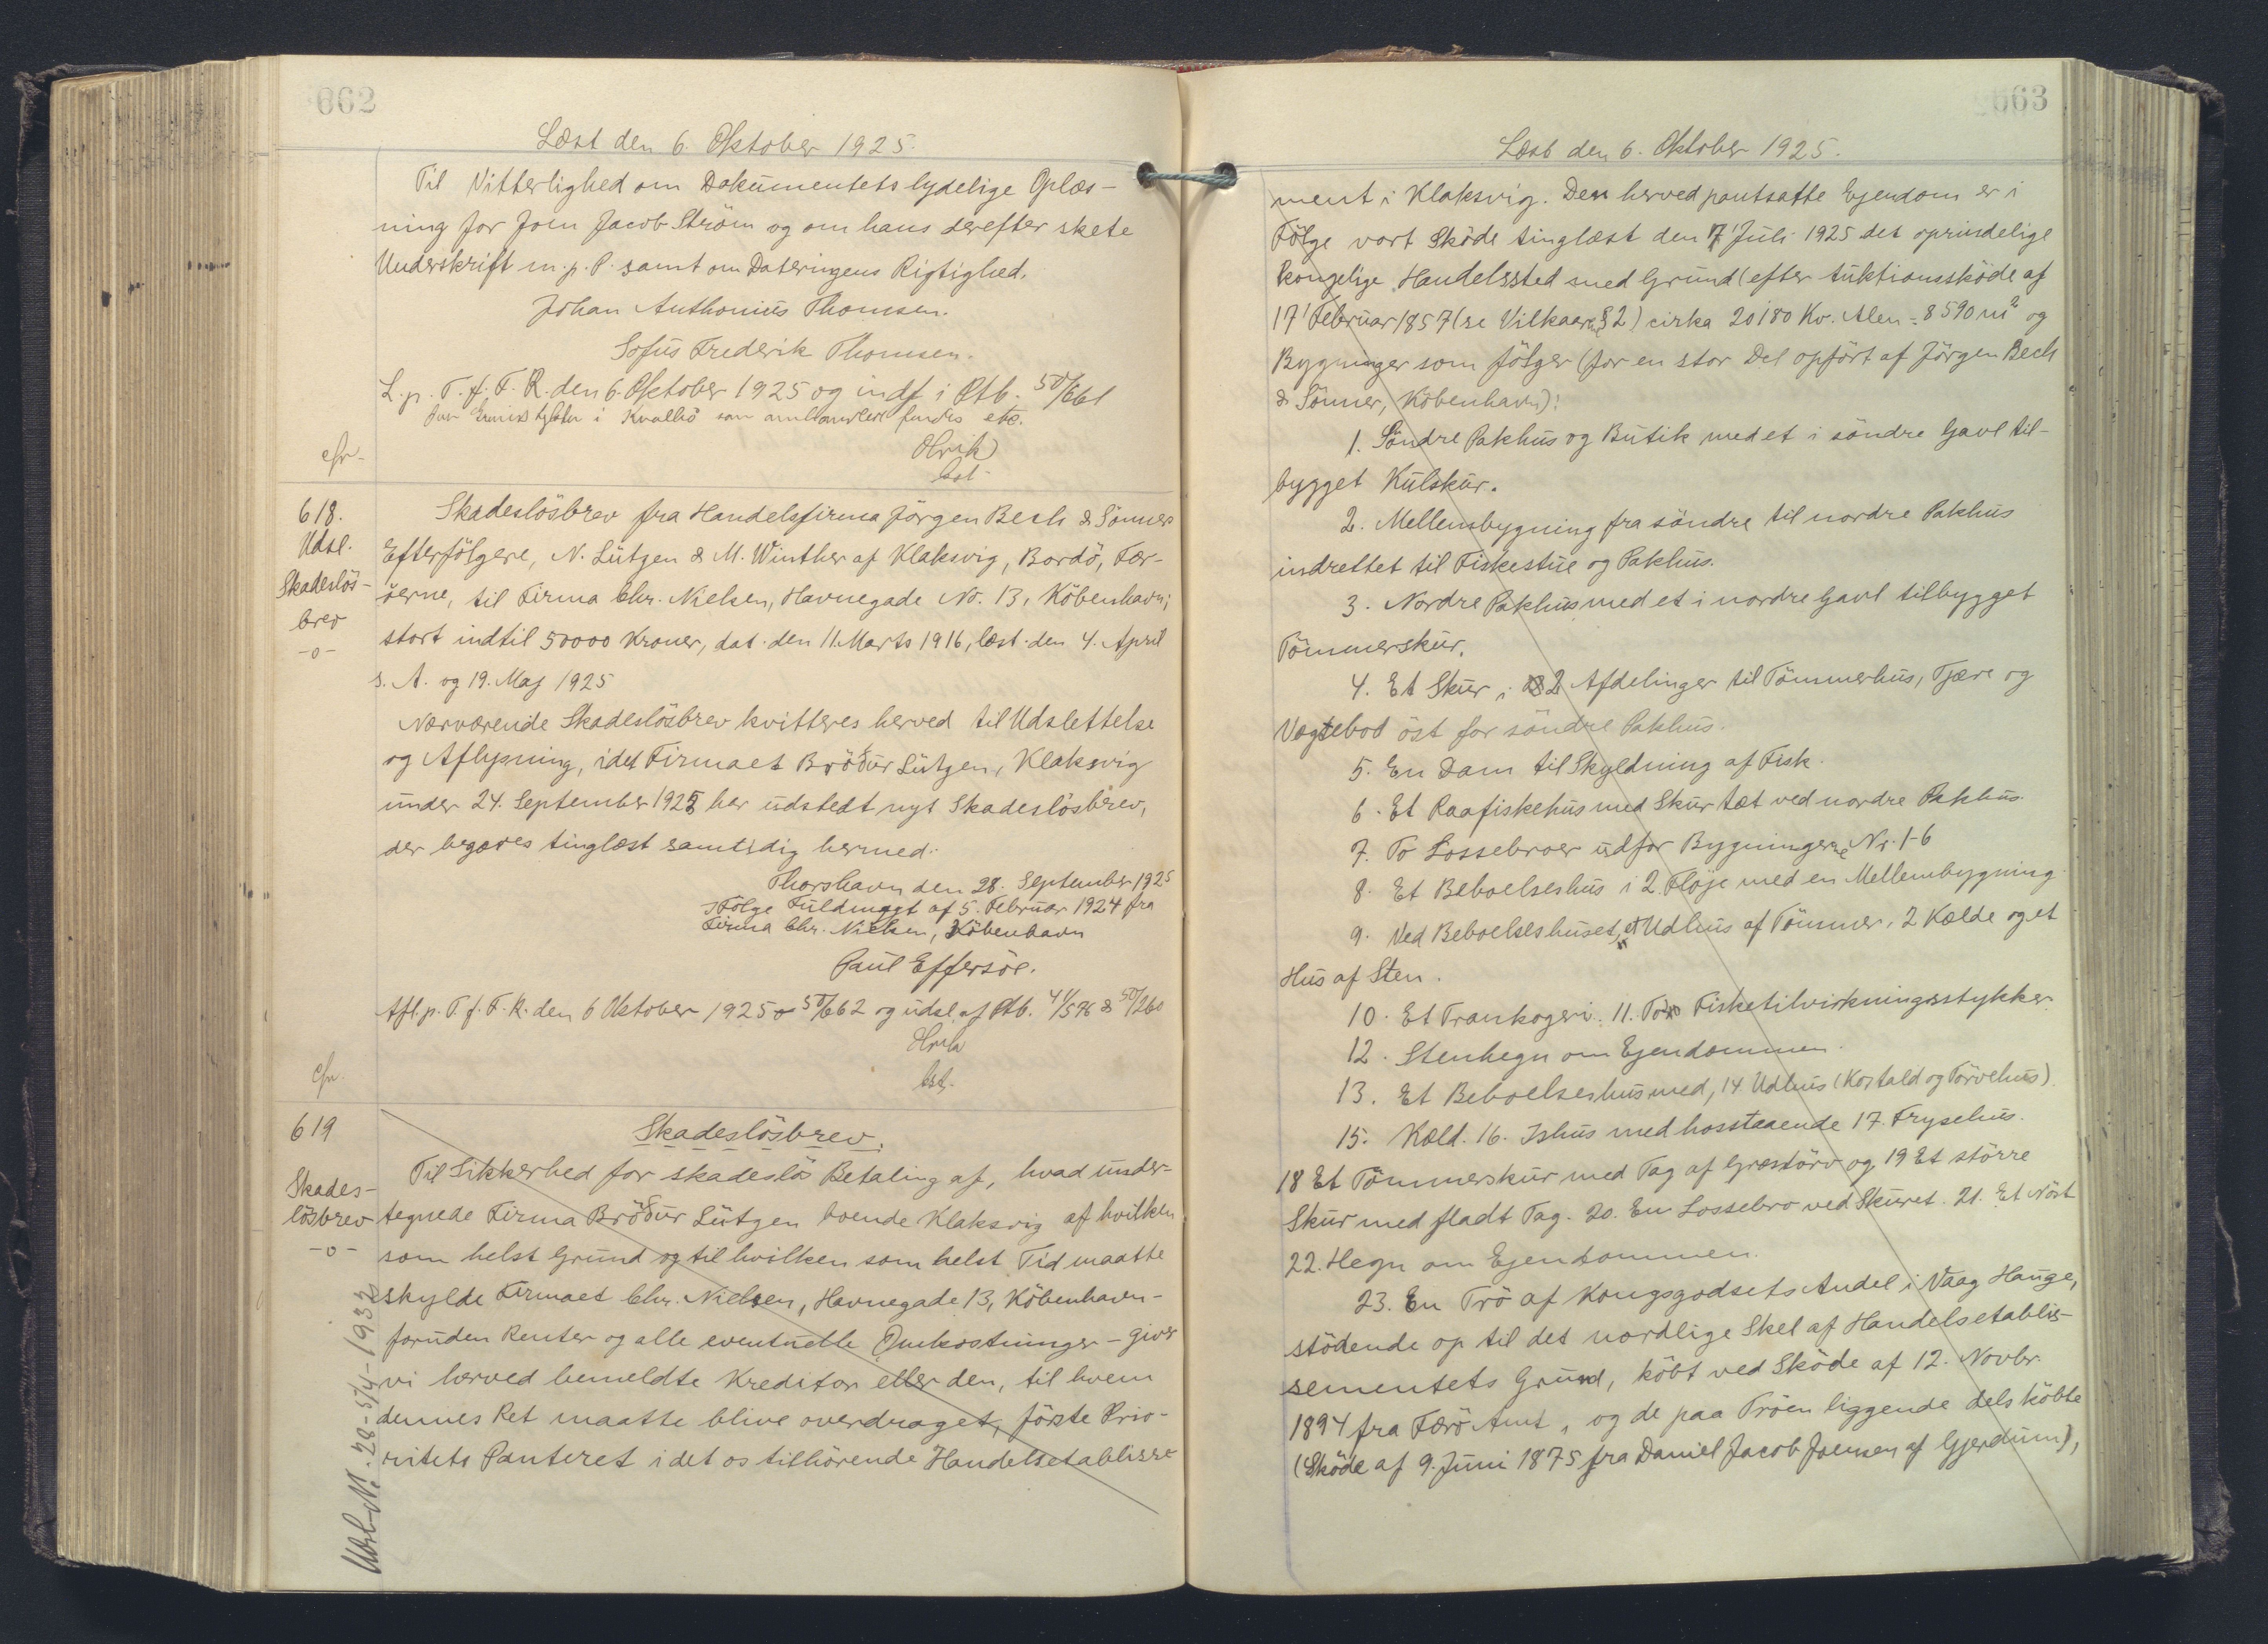 662
Læst den 6. Oktober 1925.
Til Vitterlighed om Dokumentets lydelige Oplæs-
ning for Joen Jacob Ström og om hans derefter skete
Underskrift m. p. P. samt om Dateringens Rigtighed.
Johan Anthonius Thomsen.
Sofus Frederik Thomsen.
L. p. T. f. F. R. den 6. Oktober 1925 og indf. i Ptb. 50/661
i Kvalbö som findes etc.
cfr.
618.
Udsl.
Skadeslös-
brev
-o-
Skadeslösbrev fra Handelsfirma Jörgen Bech & Sönner
Efterfölgere, N. Lützen & M. Winther af Klaksvig, Bordö, Fær-
öerne, til Firma Chr. Nielsen, Havnegade No. 13, Köbenhavn;
stort indtil 50000 Kroner, dat. den 11. Marts 1916, læst den 4. April
s. A. og 19. Maj 1925
Nærværende Skadeslösbrev kvitteres herved til Udslettelse
og Aflysning, idet Firmaet Bröður Lützen, Klaksvig
under 24. September 1925 har udstedt nyt Skadeslösbrev,
der begæres tinglæst samtidig hermed.
Thorshavn den 28. September 1925
I Fölge Fuldmagt af 5. Februar 1924 fra
Firma Chr. Nielsen, Köbenhavn
Paul Effersöe.
Afl. p. T. f. F. R. den 6 Oktober 1925 50/662 og udsl. af Ptb. 41/576 & 50/260
cfr.
619
Skades-
lösbrev
-o-
Skadeslösbrev.
Til Sikkerhed for skadeslös Betaling af, hvad under-
tegnede Firma Bröður Lützen boende Klaksvig af hvilken
som helst Grund og til hvilken som helst Tid maatte
skylde Firmaet Chr. Nielsen, Havnegade 13, Köbenhavn -
foruden Renter og alle eventuelle Omkostninger - giver
vi herved bemeldte Kreditor eller den, til hvem
dennes Ret maatte blive overdraget, förste Prio-
ritets Panteret i det os tilhörende Handelsetablisse
Udsl. 20-5/4-1932
663
Læst den 6. Oktober 1925.
ment i Klaksvig. Den herved pantsatte Ejendom er i
Fölge vort Sköde tinglæst den 7' Juli 1925 det oprindelige
kongelige Handelssted med Grund (efter Auktionssköde af
17' Februar 1857 (se Vilkaarene § 2) cirka 20180 Kv. Alen = 8590 m² og
Bygninger som fölger (for en stor Del opfört af Jörgen Bech
& Sönner, Köbenhavn):
1. Söndre Pakhus og Butik med et i söndre Gavl til-
bygget Kulskur.
2. Mellembygning fra söndre til nordre Pakhus
indrettet til Fiskestue og Pakhus.
3. Nordre Pakhus med et i nordre Gavl tilbygget
Tömmerskur.
4. Et Skur i 2 Afdelinger til Tömmerhus, Tjære og
Vægtebod öst for söndre Pakhus.
5. En Dam til Skyldning af Fisk.
6. Et Raafiskehus med Skur tæt ved nordre Pakhus.
7. To Lossebroer udfor Bygningerne Nr. 1-6
8. Et Beboelseshus i 2 Flöje med en Mellembygning
9. Ved Beboelseshuset, et Udhus af Tömmer, 2 Kælde og et
Hus af Sten.
10. Et Trankogeri. 11. To Fisketilvirkningsstykker
12. Stenhegn om Ejendommen.
13. Et Beboelseshus med, 14 Udhus (Kostald og Törvehus)
15. Kæld. 16. Ishus med hosstaaende 17. Frysehus.
18 Et Tömmerskur med Tag af Græstörv og 19 Et större
Skur med fladt Tag. 20. En Lossebro ved Skuret. 21. Et Nöst
22. Hegn om Ejendommen.
23. En Trö af Kongsgodsets Andel i Vaag Hauge,
stödende op til det nordlige Skel af Handelsetablis-
sementets Grund, köbt ved Sköde af 12. Novbr.
1894 fra Færö Amt, og de paa Tröen liggende dels köbte
(Sköde af 9. Juni 1875 fra Daniel Jacob Joensen af Gjerdum),